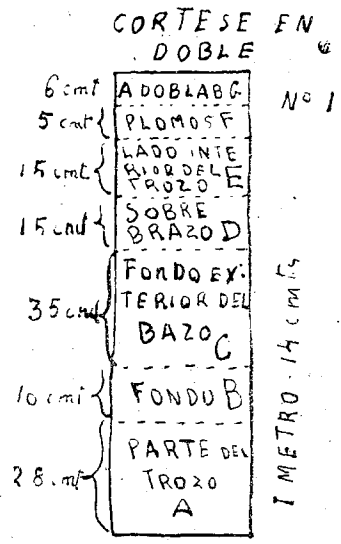 CORTESE EN
DOBLE
Nº 1
6 cmt
A DOBLAB G
5 cmt
PLOMOS F
15 cmt
LADO INTE
RIOR DEL
TROZO E
15 cmt
SOBRE
BRAZO D
35 cmt
FONDO EX-
TERIOR DEL
BAZO C
10 cmt
FONDU B
28 cmt
PARTE DEL
TROZO
A
1 METRO. 14 cmts